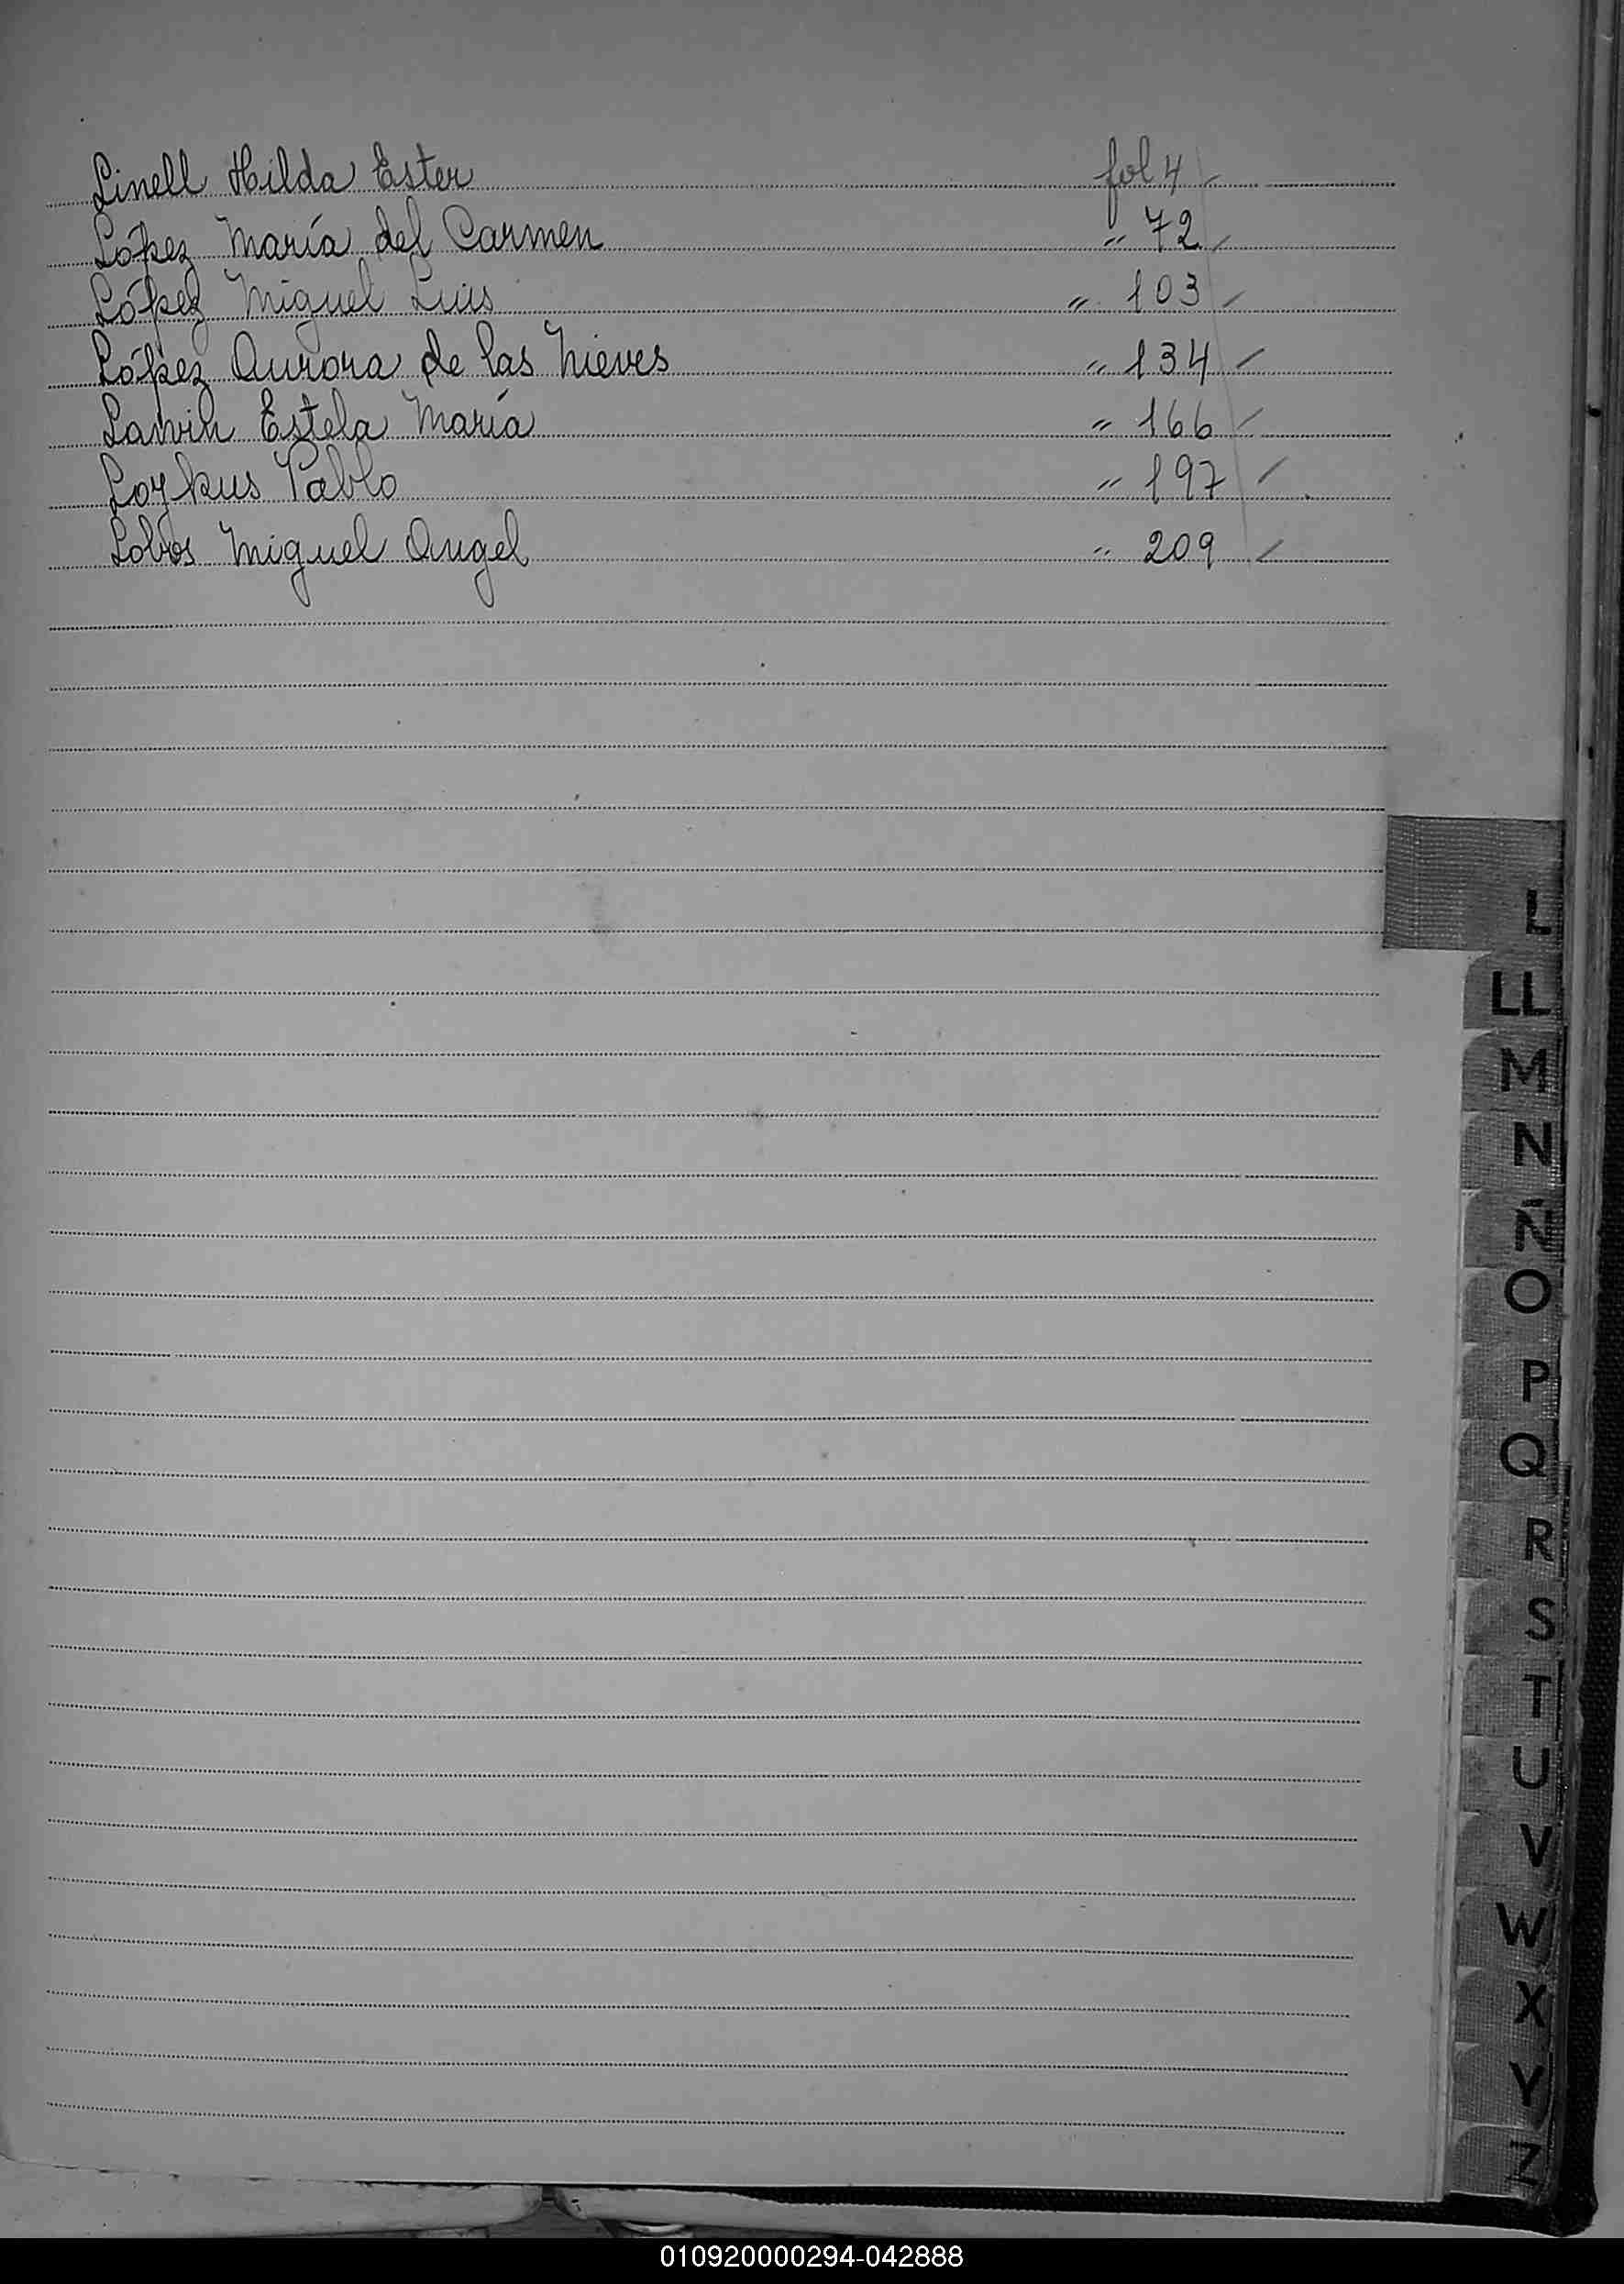 Linell Hilda Ester fol 4
López María del Carmen " 72
López Miguel Luis " 103
López Aurora de las Nieves " 134
Estela María " 166
Loykus Pablo " 197
Lobos Miguel Angel " 209
L
LL
M
N
Ñ
O
P
Q
R
S
T
U
V
W
X
Y
Z
010920000294-042888